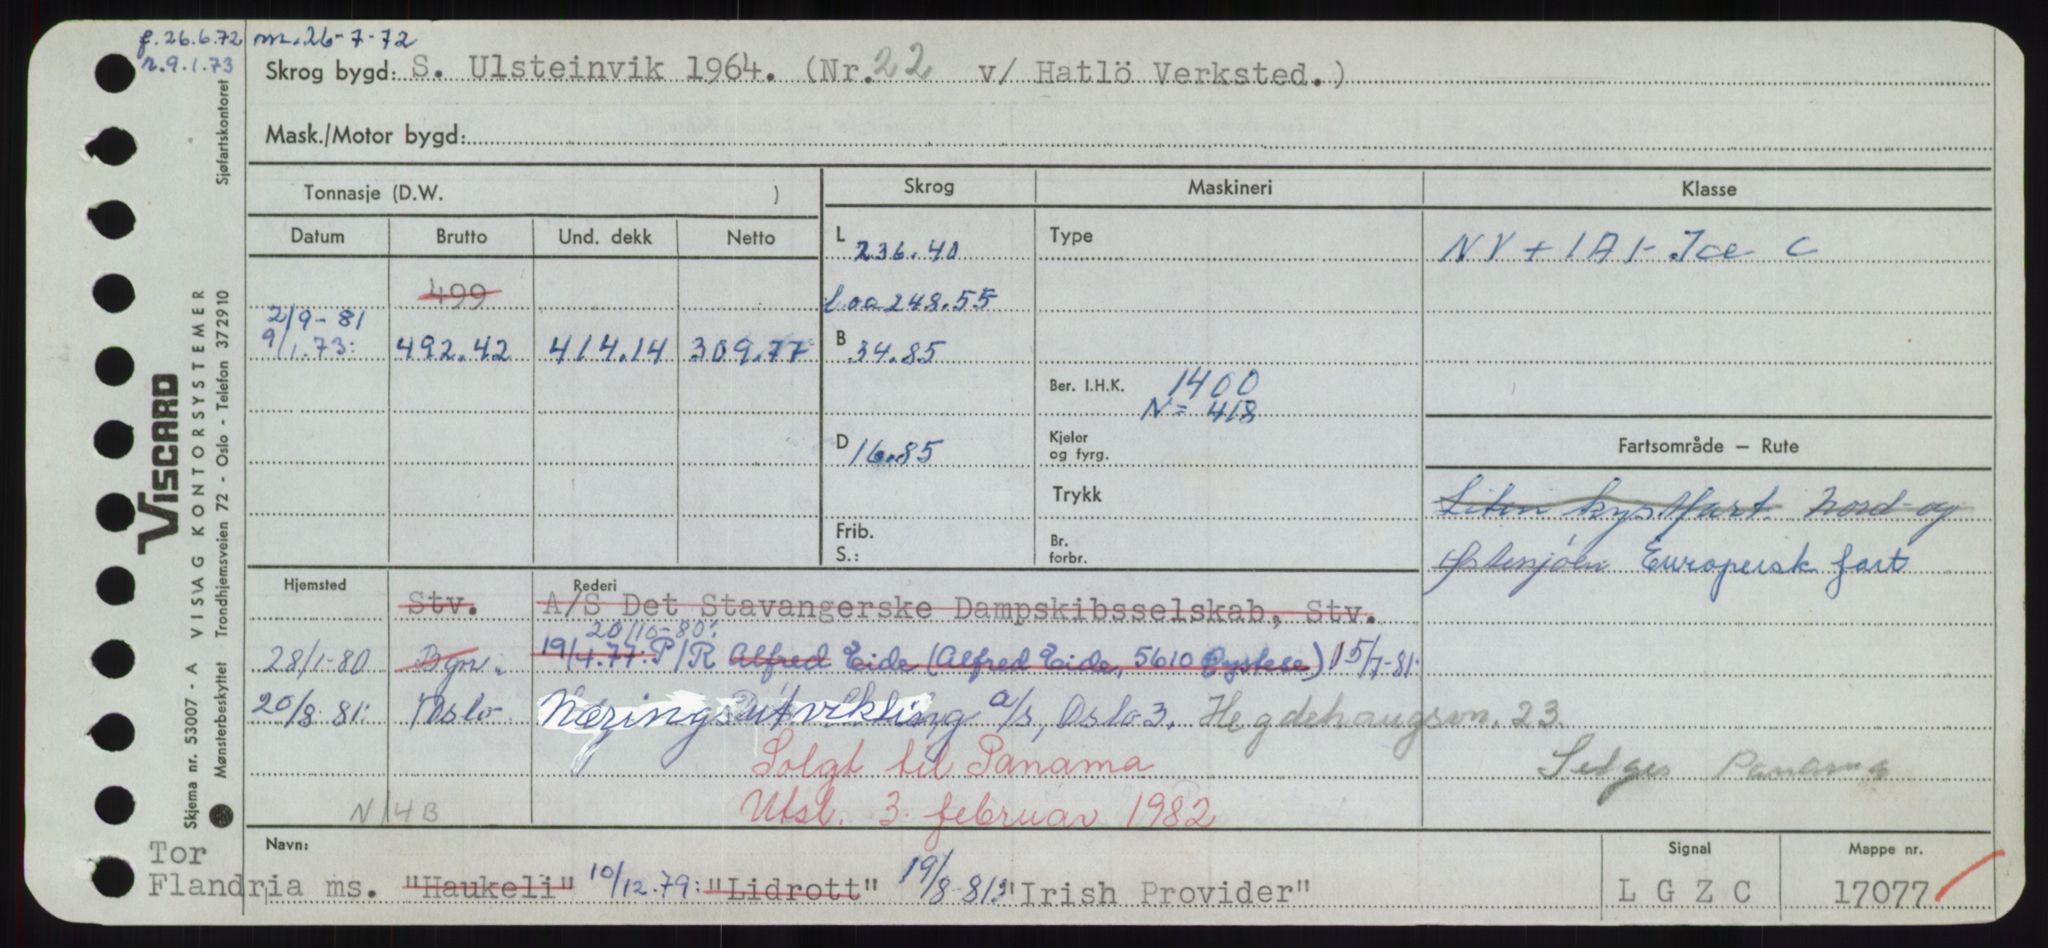 f. 26.6.72 m. 26-7-72
n. 9.1.73
Skrog bygd: S. Ulsteinvik 1964. (Nr. 22 v/ Hatlö Verksted.)
Mask./Motor bygd:
Tonnasje (D.W. )
Skrog
Maskineri
Klasse
Datum Brutto Und. dekk Netto
499
2/9-81
9/1.73: 492.42 414.14 309.77
L 236.40
Loa 248.55
B 34.85
D 16.85
Frib.
S.:
Type
Ber. I.H.K. 1400
N= 418
Kjeler
og fyrg.
Trykk
Br.
forbr.
NV + 1A1- Ice C
Fartsområde — Rute
Liten kystfart. Nord- og
Østersjøen Europeisk fart
Hjemsted Rederi
Stv. A/S Det Stavangerske Dampskibsselskab, Stv.
20/10-80:
28/1-80 Bgn. 19/4.77: P/R Alfred Eide (Alfred Eide, 5610 Øystese) 15/7-81:
20/8 81: Oslo Næringsutvikling a/s, Oslo 3. Hegdehaugsvn. 23.
Solgt til Panama Selges Panama
N/4B Utsl. 3. februar 1982
Navn: Signal Mappe nr.
Tor
Flandria ms. "Haukeli" 10/12.79: "Lidrott" 19/8-81: "Irish Provider" LGZC 17077
Sjøfartskontoret
VISCARD
VISAG KONTORSYSTEMER
Skjema nr. 53007 - A
Mønsterbeskyttet Trondhjemsveien 72 - Oslo - Telefon 372910